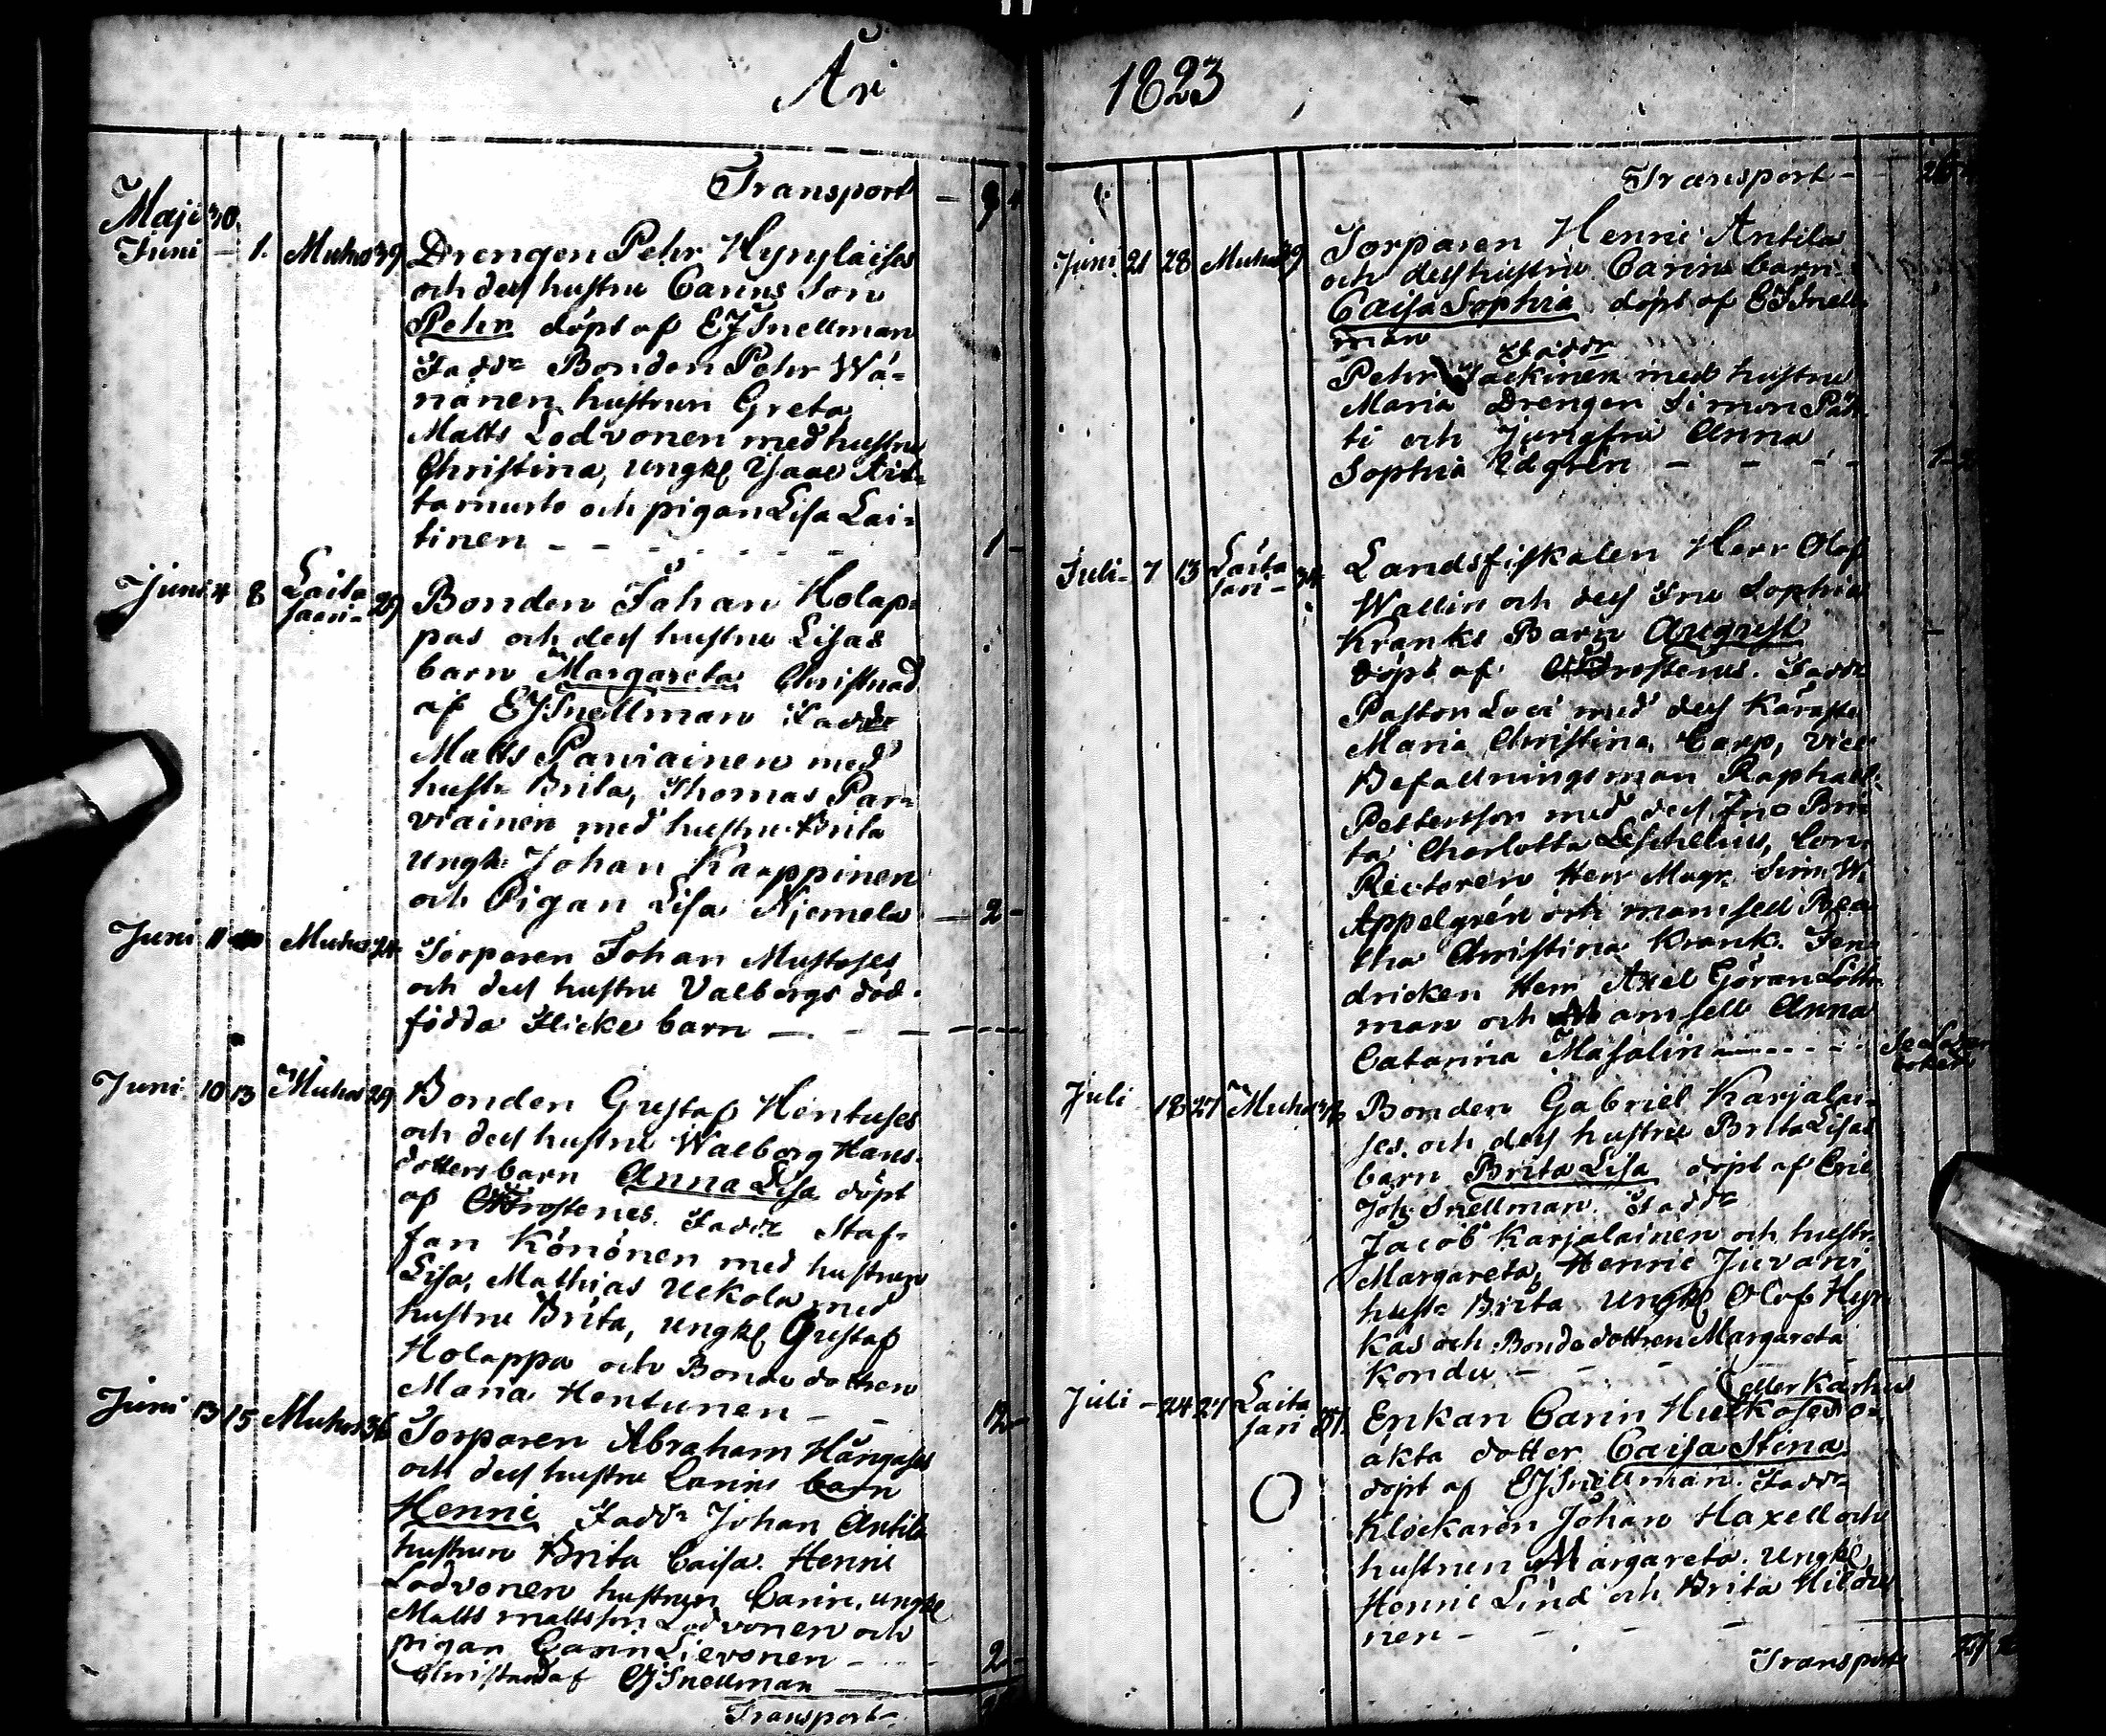 År
Transport - 9
Maji 30.
Juni - 1. Muhos 39 Drengen Pehr Hynyläises
och dess hustru Carins Son
Pehr döpt af EJSnellman
Fadd:r Bonden Pehr Wä-
nänen hustrun Greta,
Matts Lodvonen med hustru
Christina, ungkl Isaac
och pigan Lisa Lai-
tinen - - - - - - 1 -
Juni 4 8 Laita
saari - 29 Bonden Johan Holap-
pas och dess hustru Lisas
barn Margareta Christnad
af EJSnellman Fadd:r
Matts Parviainen med
hustr. Brita, Thomas Par-
viainen med hustru Brita
ungk: Johan Karppinen
och Pigan Lisa Njemelä - 2 -
Juni 11 Muhos 24 Torparen Johan Mustoses
och dess hustru Valborgs död-
födda Flicke barn - - -
Juni 10 13 Muhos 29 Bonden Gustaf Hentuses
och dess hustru Walborg Hans-
dotters barn Anna Lisa döpt
af Frosterus. Fadd:r Staf-
fan Könönen med hustrun
Lisa, Mathias Uckola med
hustru Brita, ungkl Gustaf
Holappa och Bonde dottren
Maria Hentunen - - 12 -
Juni 13 15 Muhos 36 Torparen Abraham Hängases
och dess hustru Carins barn
Henric Fadd:r Johan Antila
hustrun Brita Caisa. Henric
Lodvonen hustrun Carin, ungkl
Matts mattsson Lodvonen och
pigan Carin Lievonen - 2 -
Christnad af EJSnellman
Transport -
1823
Transport -
Juni 21 28 Muhos 29 Torparen Henric Antila
och dess hustru Carins barn
Caisa Sophia döpt af EJSnell-
man
Faddr
Pehr Säckinen med hustru
Maria Drengen Simon Pät-
ti och Jungfru Anna
Sophia Edgren - - - 1 -
Juli - 7 13 Laita
sari - 34 Landsfiskalen Herr Olof
Wallin och dess Fru Sophia
Kranks Barn August
döpt af Frosterus. Fadd:r
Pastor Lovi med dess Käraste
Maria Christina Carp, vice
Befallningsman Raphael
Pettersson med dess Fru Bri-
ta Charlotta Leschelius, Con-
Rectoren Herr Magr. Sim: W.
Appelgren och mamsell Bea-
tha Christina Krank. Fen-
dricken Herr Axel Göran Löth-
man och Mamsell Anna
Catarina Masalin - - - -
Juli 18 27 Muhos Bonden Gabriel Karjalai-
ses och dess hustru Brita Lisas
barn Brita Lisa döpt af Eric
Joh: Snellman. Fadd:r
Jacob Karjalainen och hustr.
Margareta, Henric Juvani
hustr Brita ungkl Olof Hyr-
käs och Bonde dottren Margareta
Kondu - - -
(eller Karhu
Juli - 24 27 Laita
sari 31. Enkan Carin Huckases o-
äkta dotter Caisa Stina
döpt af EJSnellman. Fadd:r
Klockaren Johan Haxell och
hustrun Margareta. Ungkl
Henric Lind och Brita Mildu
nen - - - -
Transport